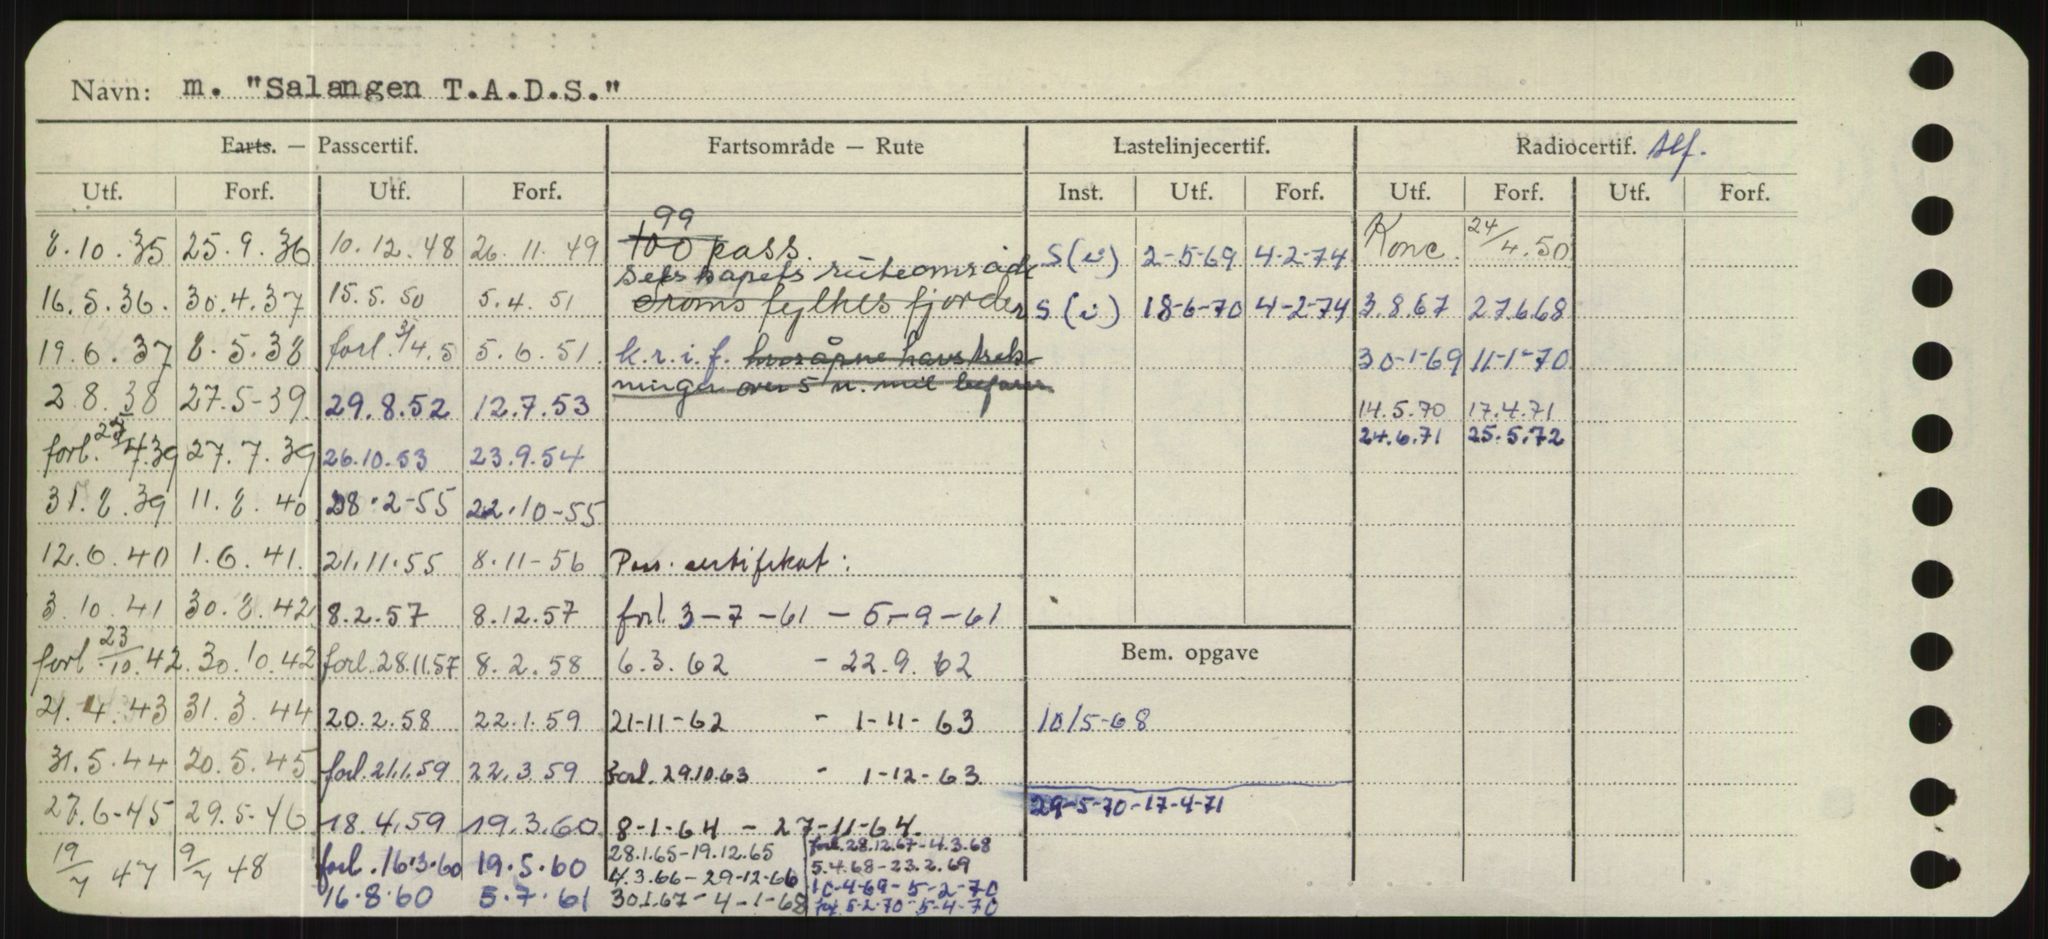 Navn: m. "Salangen T.A.D.S."
Farts. — Passcertif. Fartsområde — Rute Lastelinjecertif. Radiocertif. tlf.
Utf. Forf. Utf. Forf. Inst. Utf. Forf. Utf. Forf. Utf. Forf.
99
8.10.35 25.9.36 10.12.48 26.11.49 100 pass. S(i) 2-5-69 4-2-74 Konc. 24/4.50
selskapets ruteområde
16.5.36. 30.4.37 15.5.50 5.4.51 Troms fylkes fjorder S(i) 18-6-70 4-2-74 3.8.67 27.6.68
19.6.37 8.5.38 forl. 3/4.5 5.6.51. k.r.i.f. hvor åpne havstrek- 30-1-69 11-1-70
ninger over 5 n. mil befares
2.8.38 27.5-39 29.8.52 12.7.53 14.5.70 17.4.71
24.6.71 25.5.72
forl. 39 27.7.39 26.10.53 23.9.54
31.8.39 11.8.40 28.2-55 22.10-55
12.6.40 1.6.41. 21.11.55 8.11-56 Pass. certifikat:
3.10.41 30.8.42 8.2.57 8.12.57 forl. 3-7-61 - 5-9-61
forl 23/10.42. 30.10.42 forl. 28.11.57 8.2.58 6.3.62 - 22.9.62 Bem. opgave
21.4.43 31.3.44 20.2.58 22.1.59 21-11-62 - 1-11-63 10/5-68
31.5.44 20.5.45 forl. 21.1.59 22.3.59 Forl. 29.10.63 - 1-12-63
29-5-70-17-4-71
27.6-45 29.5-46 18.4.59 19.3.60 8-1-64 - 27-11-64.
19/7 47 9/7 48 forl. 16.3.60 19.5.60 28.1.65-19.12.65 forl. 28.12.67-4.3.68
4.3.66-29-12-66 5.4.68-23.2.69
16.8.60 5.7.61 30.1.67-4-1-68 10-4-69-5-2-70
forl 5-2-70-5-4-70